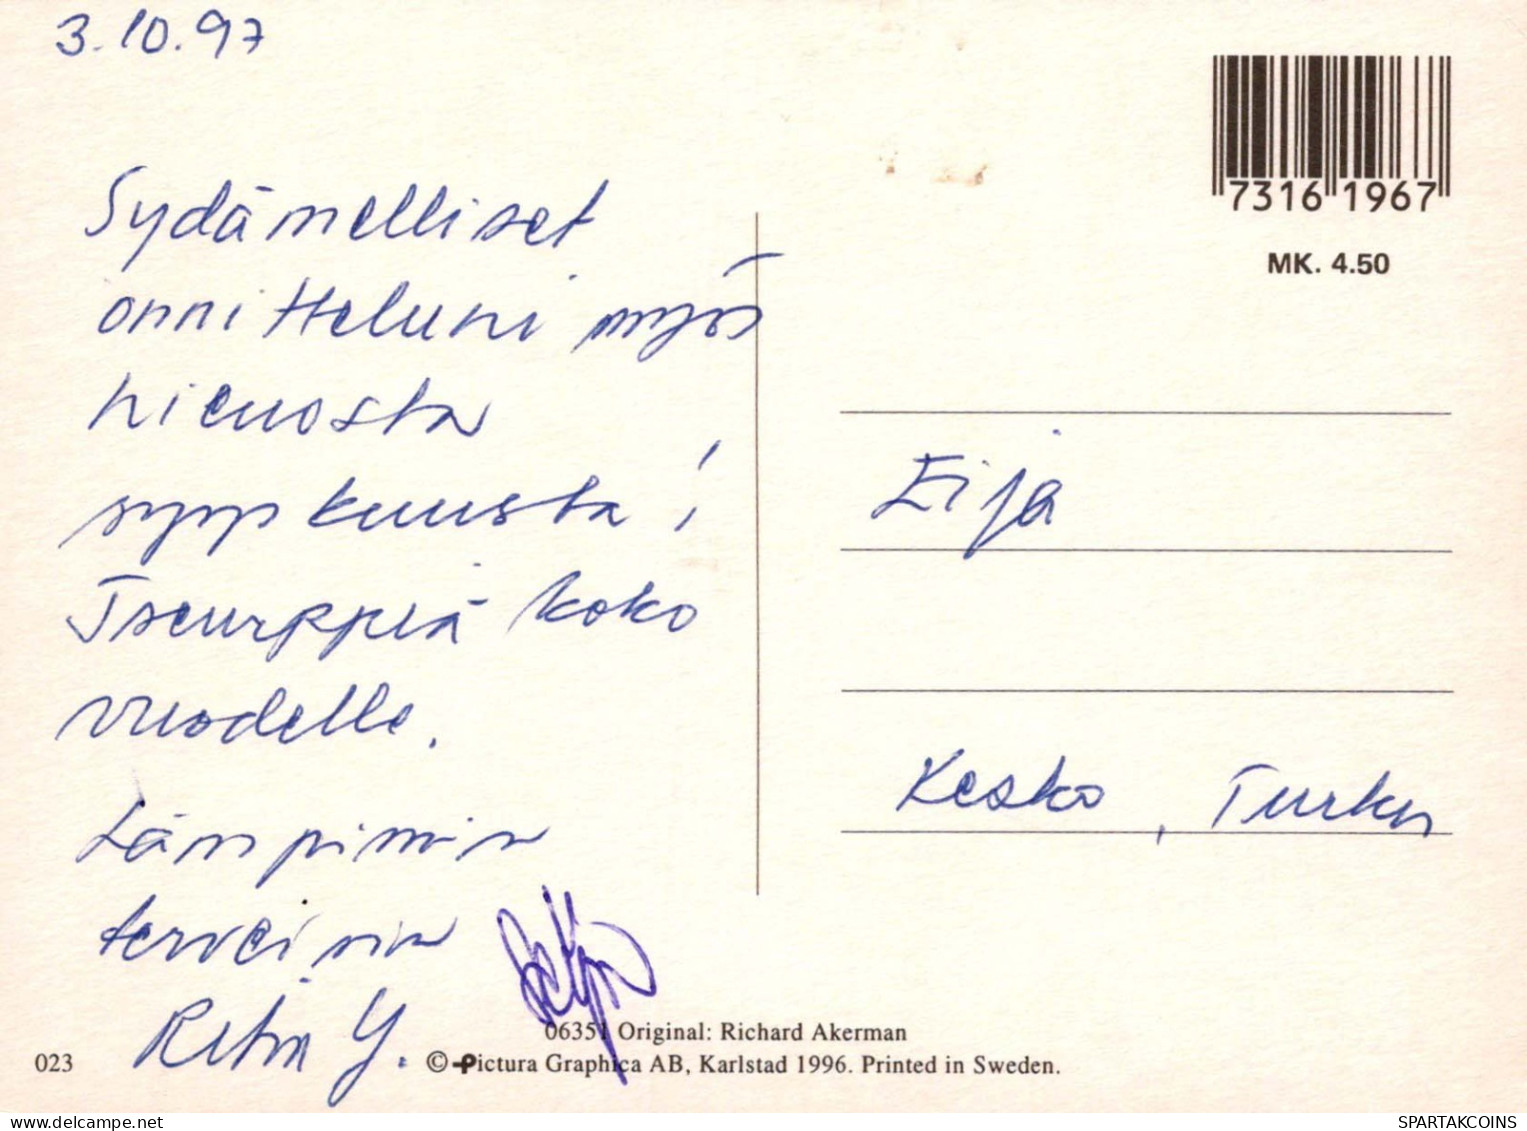 3.10.97
Sydämelliset
onnitteluni myös
hienosta
syyskuusta!
Tsemppiä koko
vuodelle.
Lämpimin
terveisin
Y.
7316 1967
MK. 4.50
Eija
Kesko, Turku
06351 Original: Richard Akerman
023
© Pictura Graphica AB, Karlstad 1996. Printed in Sweden.
delcampe.net
SPARTAKCOINS